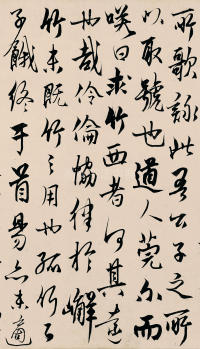 所歌詠此吾公子之所
以取號也道人莞尔而
咲曰求竹西者何其遠
也哉伶倫協律於嶰
竹未既竹之用也孤竹之
子餓終于首昜亦未適